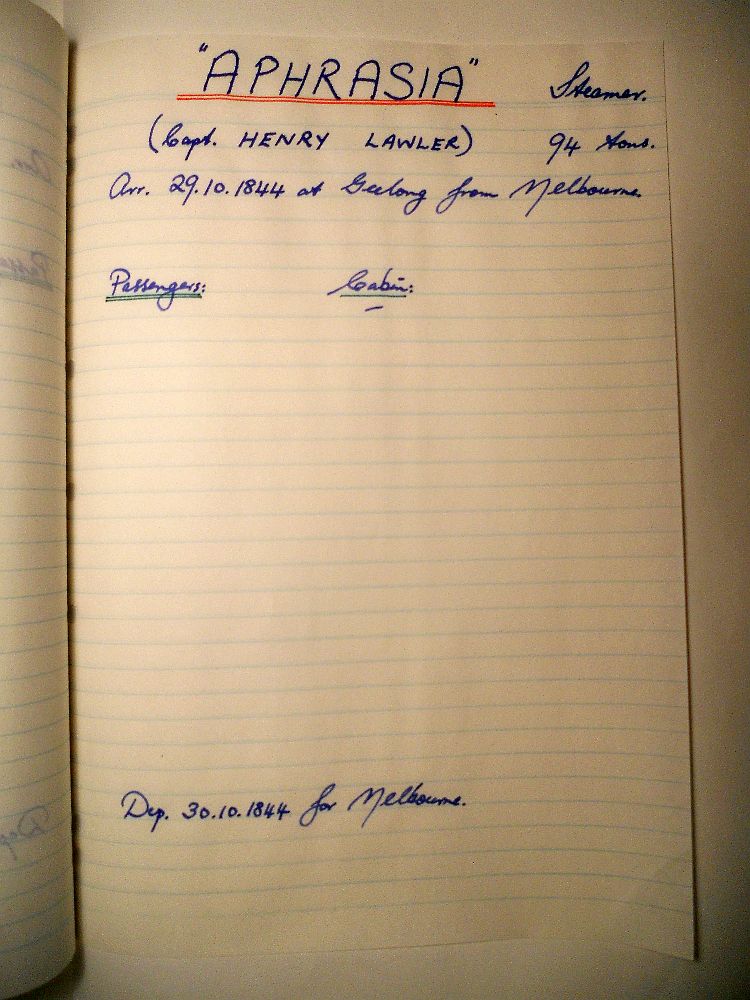 "APHRASIA" Steamer.
(Capt. HENRY LAWLER) 94 tons.
Arr. 29.10.1844 at Geelong from Melbourne.
Passengers: Cabin:
–
Dep. 30.10.1844 for Melbourne.